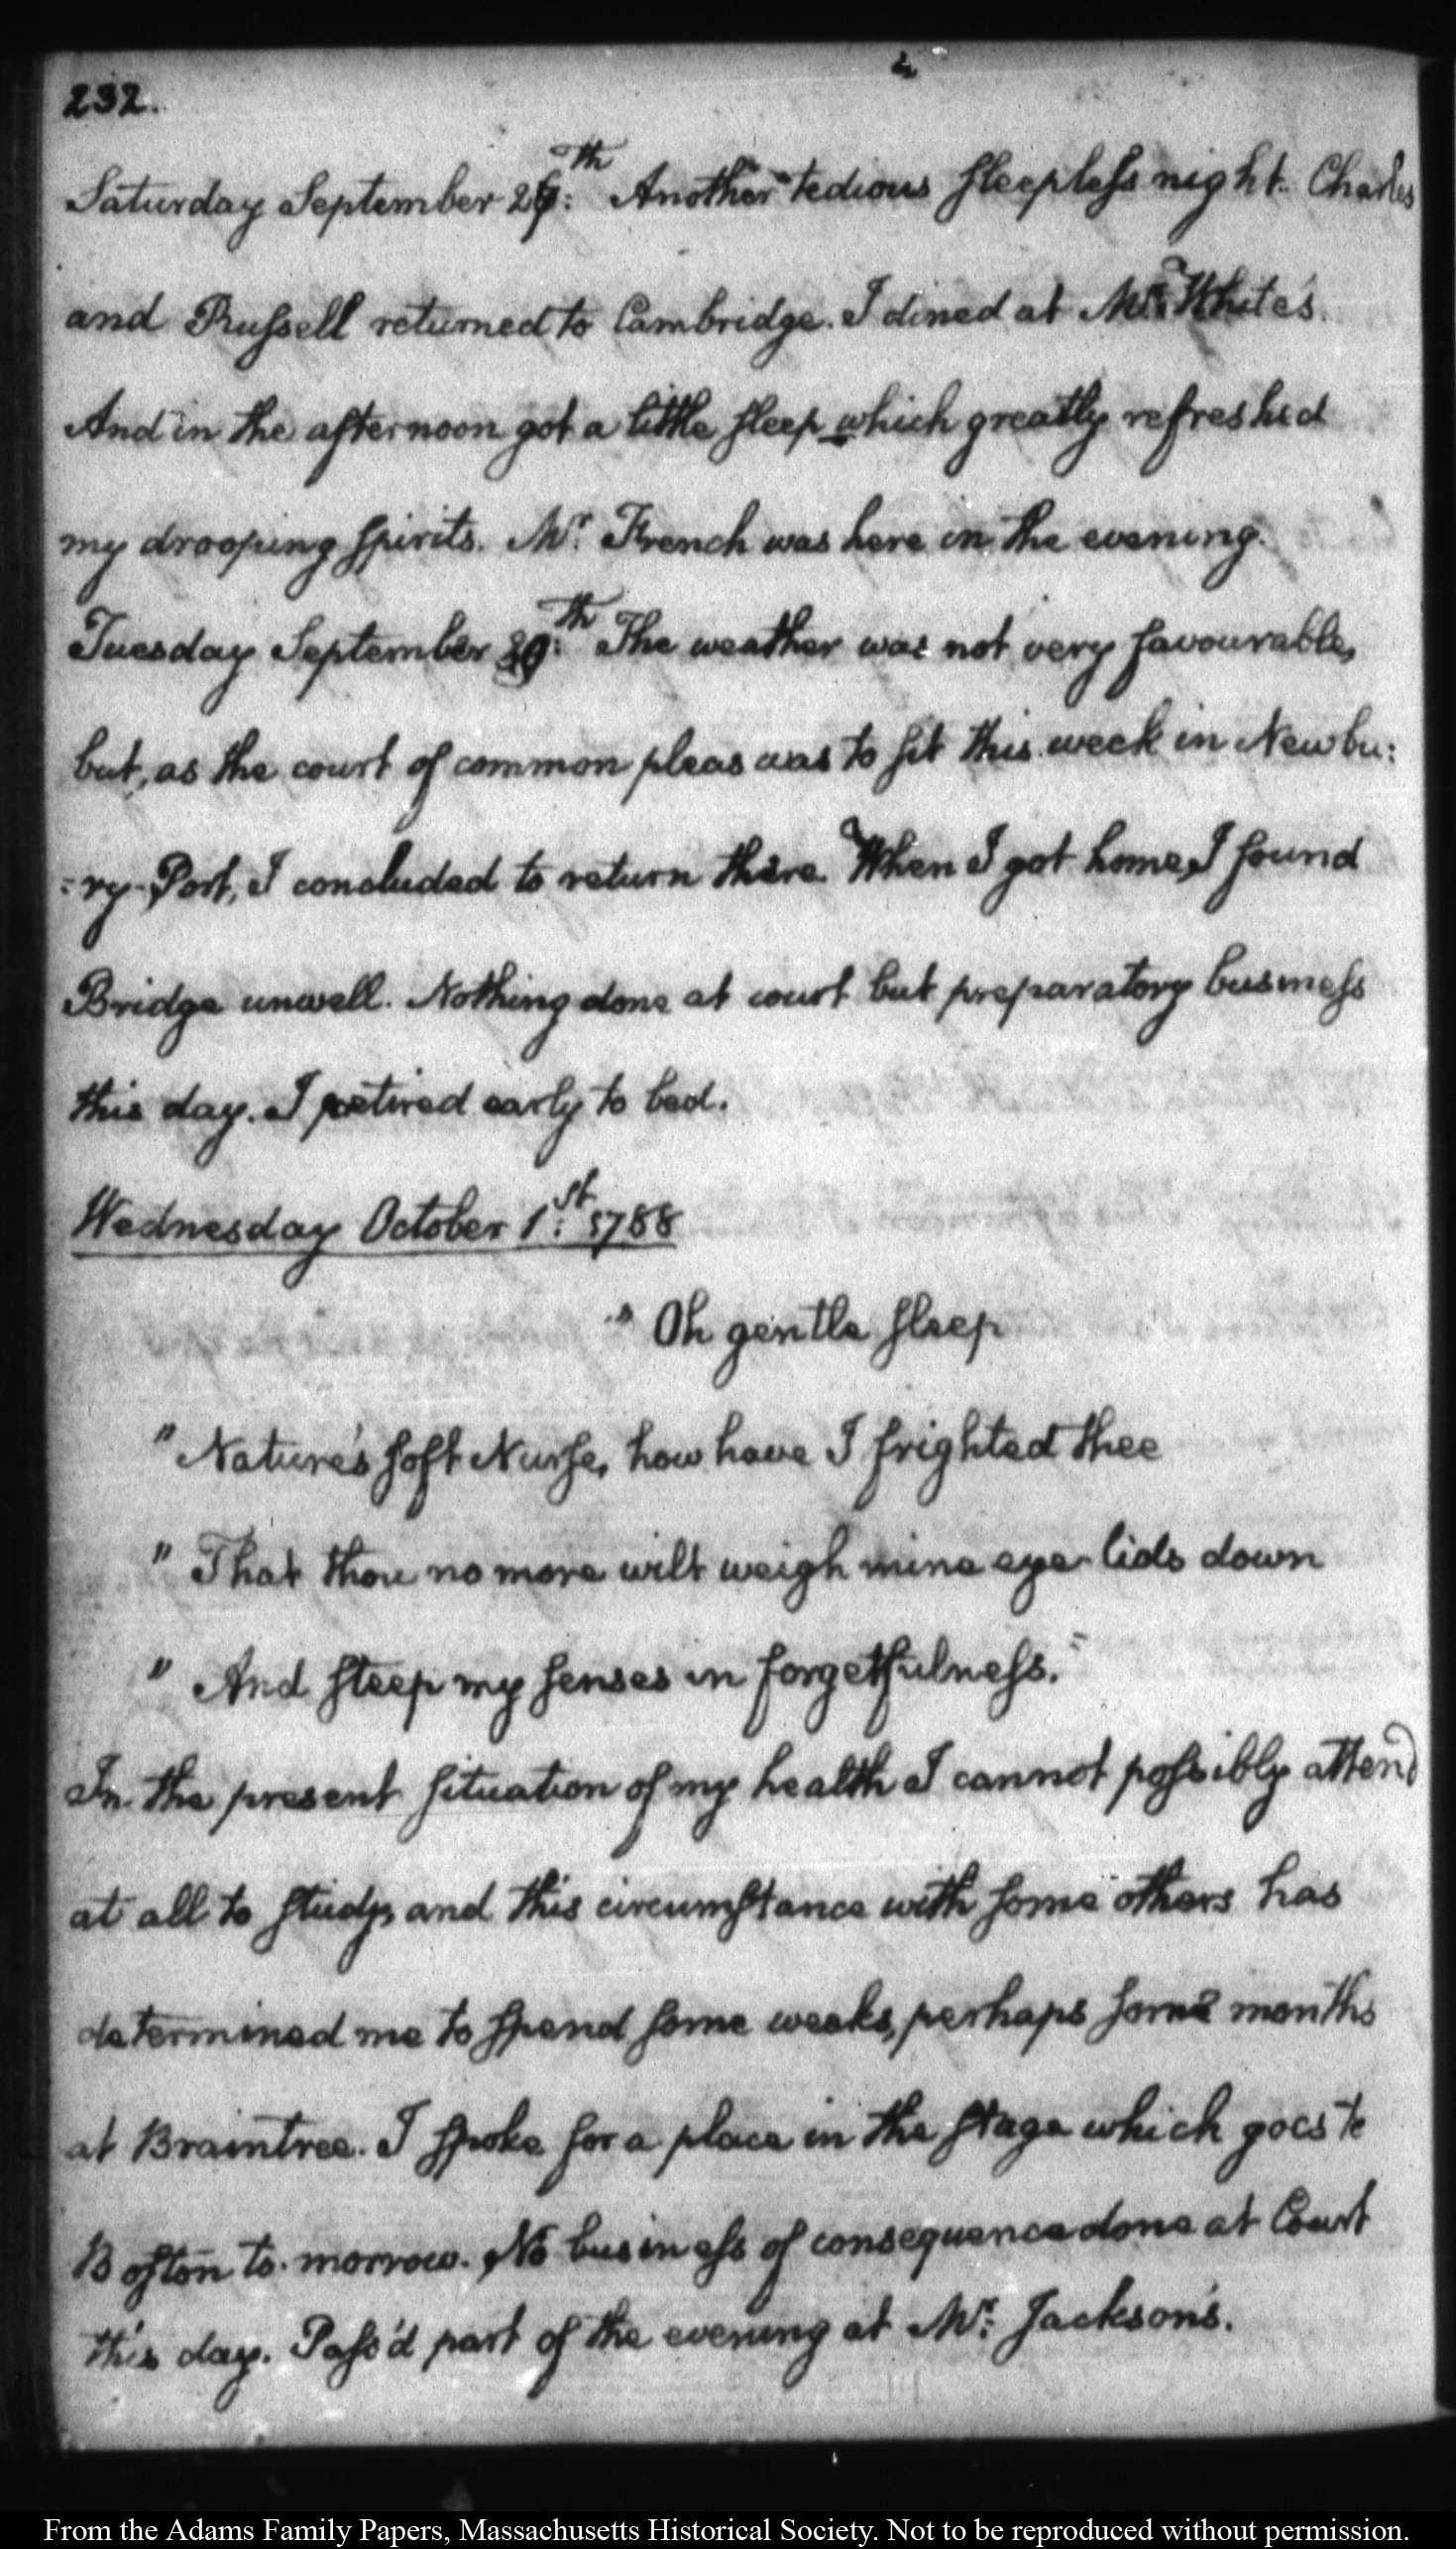 232.
Saturday September 27:th Another tedious sleepless night. Charles
and Russell returned to Cambridge. I dined at Mr: White's.
And in the afternoon got a little sleep which greatly refreshed
my drooping spirits. Mr: French was here in the evening.
Tuesday September 30:th The weather was not very favourable,
but, as the court of common pleas was to sit this week in Newbu:
:ry-Port, I concluded to return there. When I got home, I found
Bridge unwell. Nothing done at court but preparatory business
this day. I retired early to bed.
Wednesday October 1:st 1788
" Oh gentle sleep
" Nature's soft Nurse, how have I frighted thee
" That thou no more wilt weigh mine eye-lids down
" And steep my senses in forgetfulness."
In the present situation of my health I cannot possibly attend
at all to study, and this circumstance with some others has
determined me to spend some weeks, perhaps some months
at Braintree. I spoke for a place in the stage which goes to
Boston to-morrow. No business of consequence done at Court
this day. Pass'd part of the evening at Mr: Jackson's.
From the Adams Family Papers, Massachusetts Historical Society. Not to be reproduced without permission.